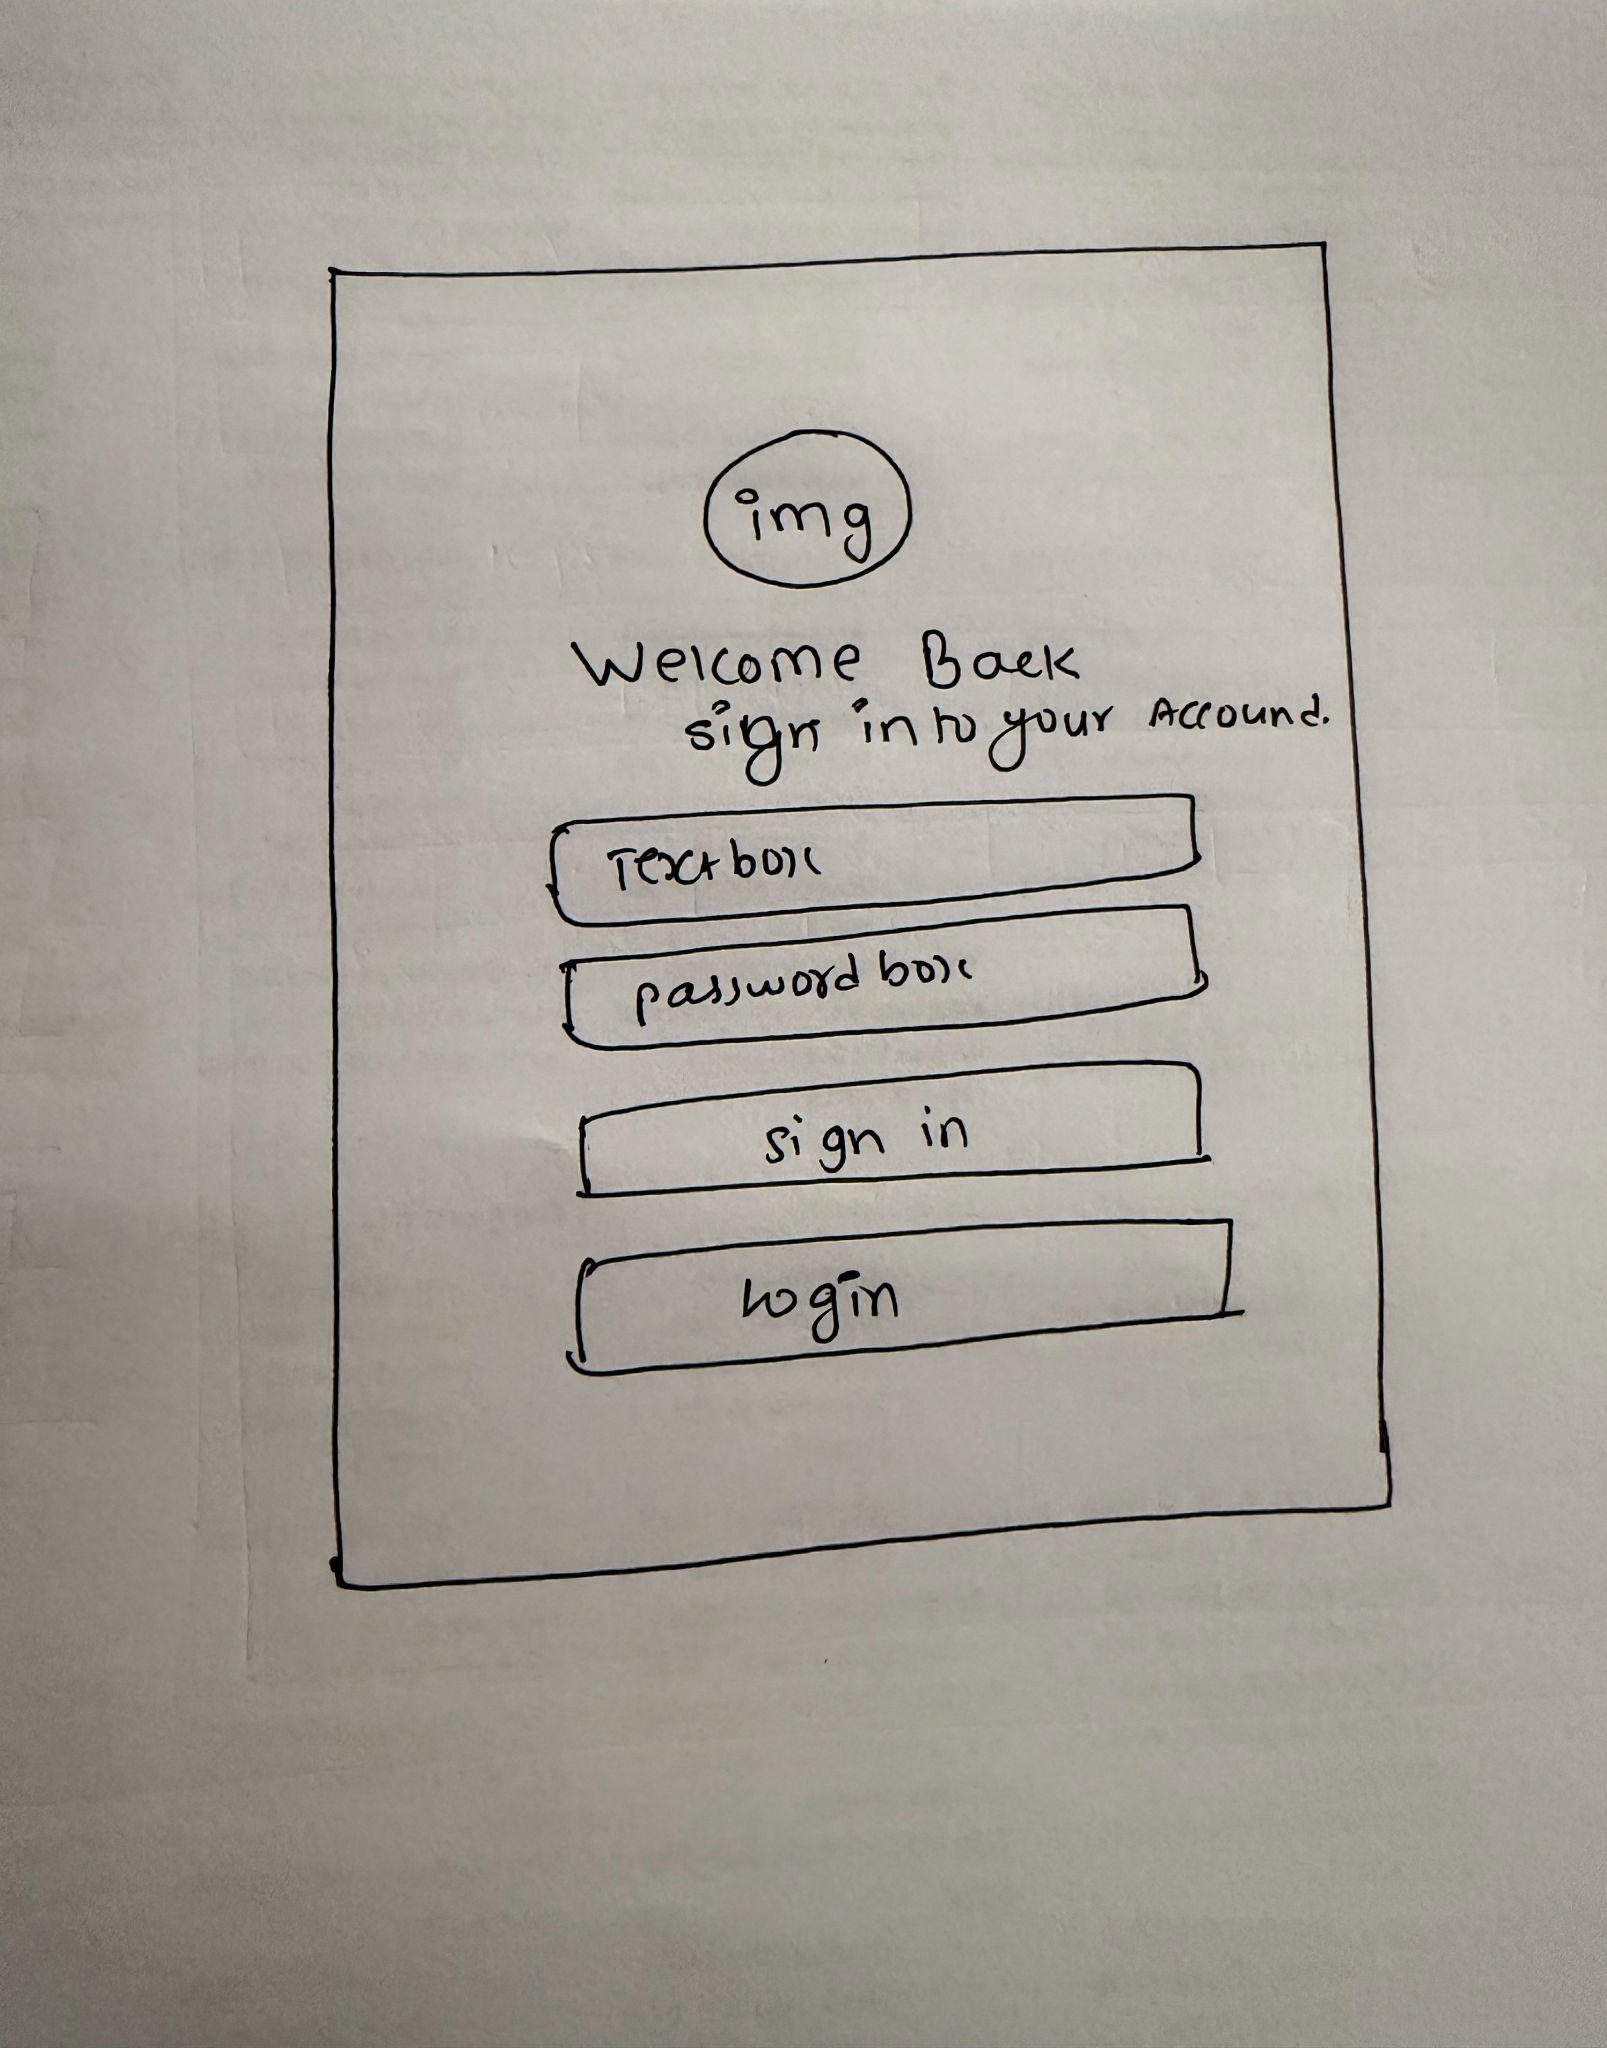 img
Welcome Back
sign in to your Accound.
Textbox
password box
sign in
login